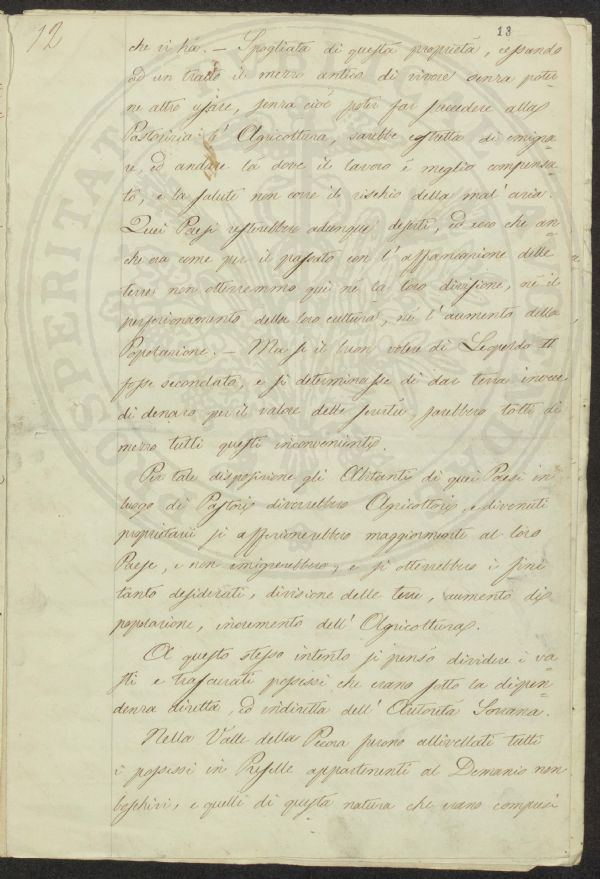 12
18
che vi ha. — Spogliata di questa proprietà, cessando
ad un tratto il mezzo antico di vivere senza poter
ne altro usare, senza cioè poter far succedere alla
Pastorizia l'Agricoltura, sarebbe costretta di emigra=
re, ed andare là dove il lavoro è meglio compensa=
to, e la salute non corre il rischio della mal'aria.
Quei Paesi resterebbero adunque deserti, ed ecco che an=
che ora come per il passato con l'affrancazione delle
terre non otterremmo quì nè la loro divisione, nè il
perfezionamento della loro cultura, nè l'aumento della
Popolazione. — Ma se il buon volere di Leopoldo II
fosse secondato, e si determinasse di dar terra invece
di denaro per il valore delle servitù sarebbero tolti di
mezzo tutti questi inconvenienti.
Per tale disposizione gli Abitanti di quei Paesi in
luogo di Pastori diverrebbero Agricoltori, e divenuti
proprietarii si affezionerebbero maggiormente al loro
Paese, e non emigrerebbero, e si otterrebbero i fini
tanto desiderati, divisione delle terre, aumento di
popolazione, incremento dell'Agricoltura.
A questo stesso intento si pensò dividere i va=
sti e trascurati possessi che erano sotto la dipen=
denza diretta, ed indiretta dell'Autorità Sovrana.
Nella Valle della Pecora furono allivellati tutti
i possessi in Preselle appartenenti al Demanio non
boschivi, e quelli di questa natura che erano compresi
PROSPERITATI PUBLICAE